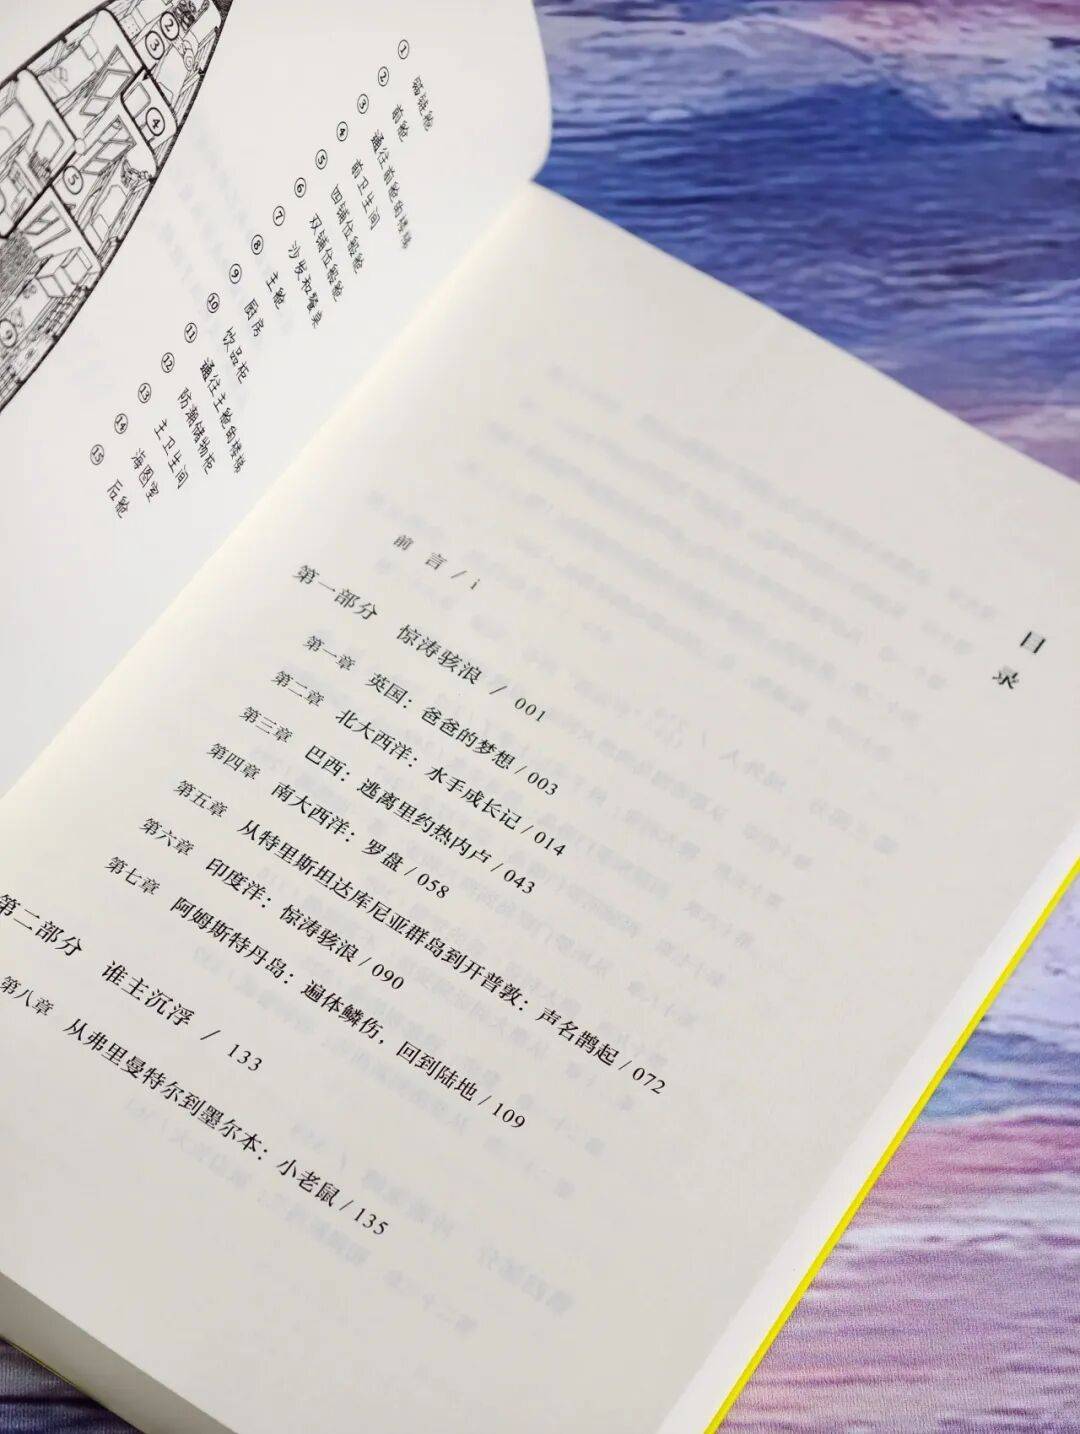 ②
③
④
⑤
① 锚链舱
② 前舱
③ 通往前舱的楼梯
④ 前卫生间
⑤ 四铺位船舱
⑥ 双铺位船舱
⑦ 沙发和餐桌
⑧ 主舱
⑨ 厨房
⑩ 饮品柜
⑪ 通往主舱的楼梯
⑫ 防潮储物柜
⑬ 主卫生间
⑭ 海图室
⑮ 后舱
目 录
前 言 / i
第一部分 惊涛骇浪 / 001
第一章 英国：爸爸的梦想 / 003
第二章 北大西洋：水手成长记 / 014
第三章 巴西：逃离里约热内卢 / 043
第四章 南大西洋：罗盘 / 058
第五章 从特里斯坦达库尼亚群岛到开普敦：声名鹊起 / 072
第六章 印度洋：惊涛骇浪 / 090
第七章 阿姆斯特丹岛：遍体鳞伤，回到陆地 / 109
第二部分 谁主沉浮 / 133
第八章 从弗里曼特尔到墨尔本：小老鼠 / 135